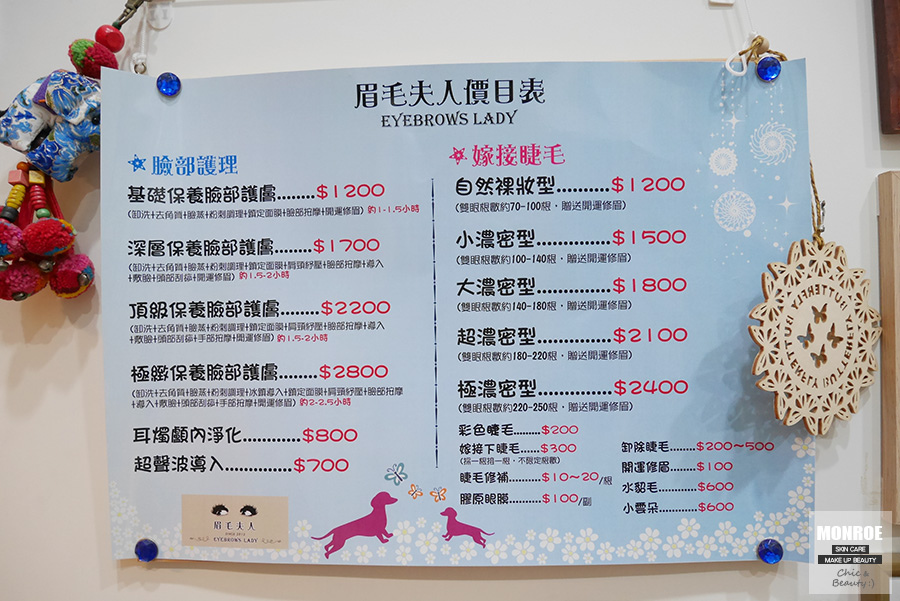 眉毛夫人價目表
EYEBROWS LADY
臉部護理
基礎保養臉部護膚.......$1200
(卸洗+去角質+臉蒸+粉刺調理+鎮定面膜+臉部按摩+開運修眉) 約1-1.5小時
深層保養臉部護膚.......$1700
(卸洗+去角質+臉蒸+粉刺調理+鎮定面膜+肩頸紓壓+臉部按摩+導入
+敷臉+頭部刮痧+開運修眉) 約1.5-2小時
頂級保養臉部護膚.......$2200
(卸洗+去角質+臉蒸+粉刺調理+鎮定面膜+肩頸紓壓+臉部按摩+導入
+敷臉+頭部刮痧+手部按摩+開運修眉) 約1.5-2小時
極緻保養臉部護膚.......$2800
(卸洗+去角質+臉蒸+粉刺調理+冰鎮導入+鎮定面膜+肩頸紓壓+臉部按摩
+導入+敷臉+頭部刮痧+手部按摩+開運修眉) 約2-2.5小時
耳燭顱內淨化............$800
超聲波導入..............$700
眉毛夫人
SINCE 2012
EYEBROWS LADY
嫁接睫毛
自然裸妝型..........$1200
(雙眼根數約70-100根，贈送開運修眉)
小濃密型..............$1500
(雙眼根數約100-140根，贈送開運修眉)
大濃密型..............$1800
(雙眼根數約140-180根，贈送開運修眉)
超濃密型..............$2100
(雙眼根數約180-220根，贈送開運修眉)
極濃密型..............$2400
(雙眼根數約220-250根，贈送開運修眉)
彩色睫毛.........$200
嫁接下睫毛......$300
(接一根接一根，不限定根數)
睫毛修補.........$10～20/根
膠原眼膜.........$100/副
卸除睫毛.......$200～500
開運修眉.........$100
水貂毛............$600
小雲朵............$600
BUTTERFLY
MONROE
SKIN CARE
MAKE UP BEAUTY
Chic &
Beauty :)